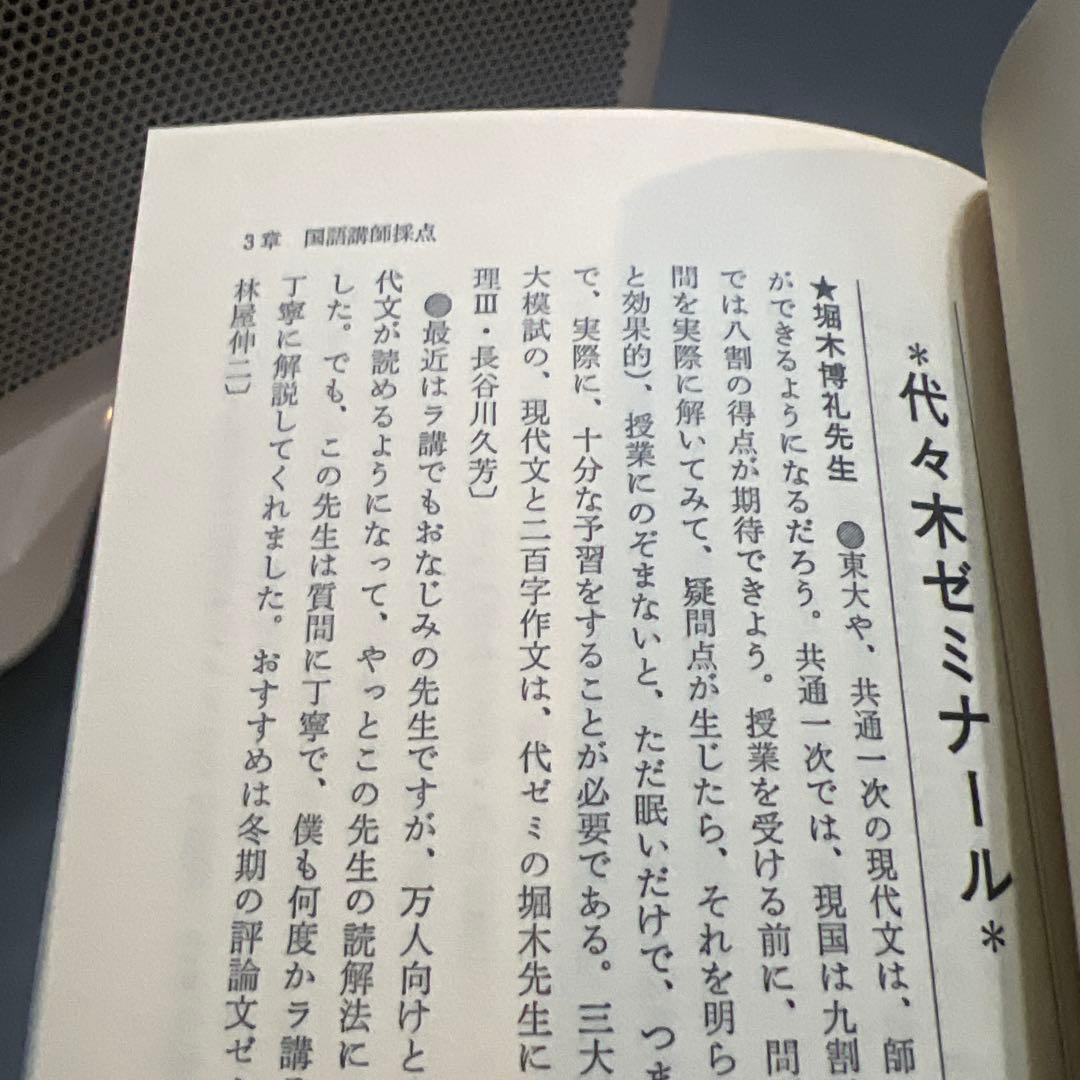 3章 国語講師採点
*代々木ゼミナール*
★堀木博礼先生 ●東大や、共通一次の現代文は、師
ができるようになるだろう。共通一次では、現国は九割
では八割の得点が期待できよう。授業を受ける前に、問
問を実際に解いてみて、疑問点が生じたら、それを明ら
と効果的)、授業にのぞまないと、ただ眠いだけで、つま
で、実際に、十分な予習をすることが必要である。三大
大模試の、現代文と二百字作文は、代ゼミの堀木先生に
理Ⅲ・長谷川久芳〕
●最近はラ講でもおなじみの先生ですが、万人向けと
代文が読めるようになって、やっとこの先生の読解法に
した。でも、この先生は質問に丁寧で、僕も何度かラ講
丁寧に解説してくれました。おすすめは冬期の評論文ゼ
林屋伸二〕